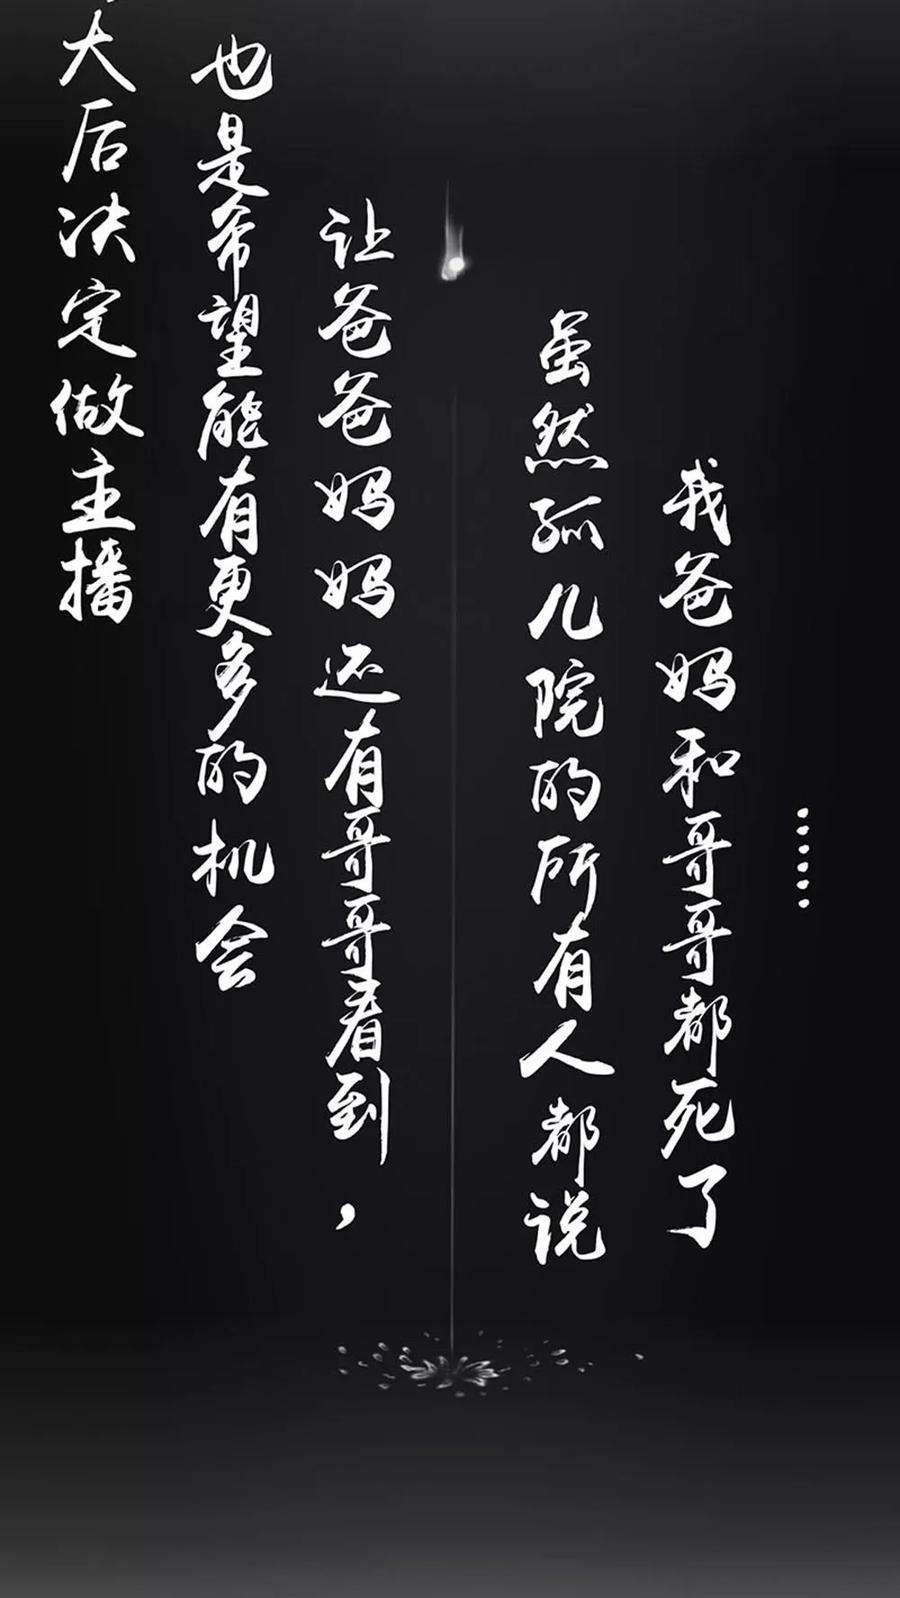 大后决定做主播
也是希望能有更多的机会
让爸爸妈妈还有哥哥看到，
虽然孤儿院的所有人都说
我爸妈和哥哥都死了
……